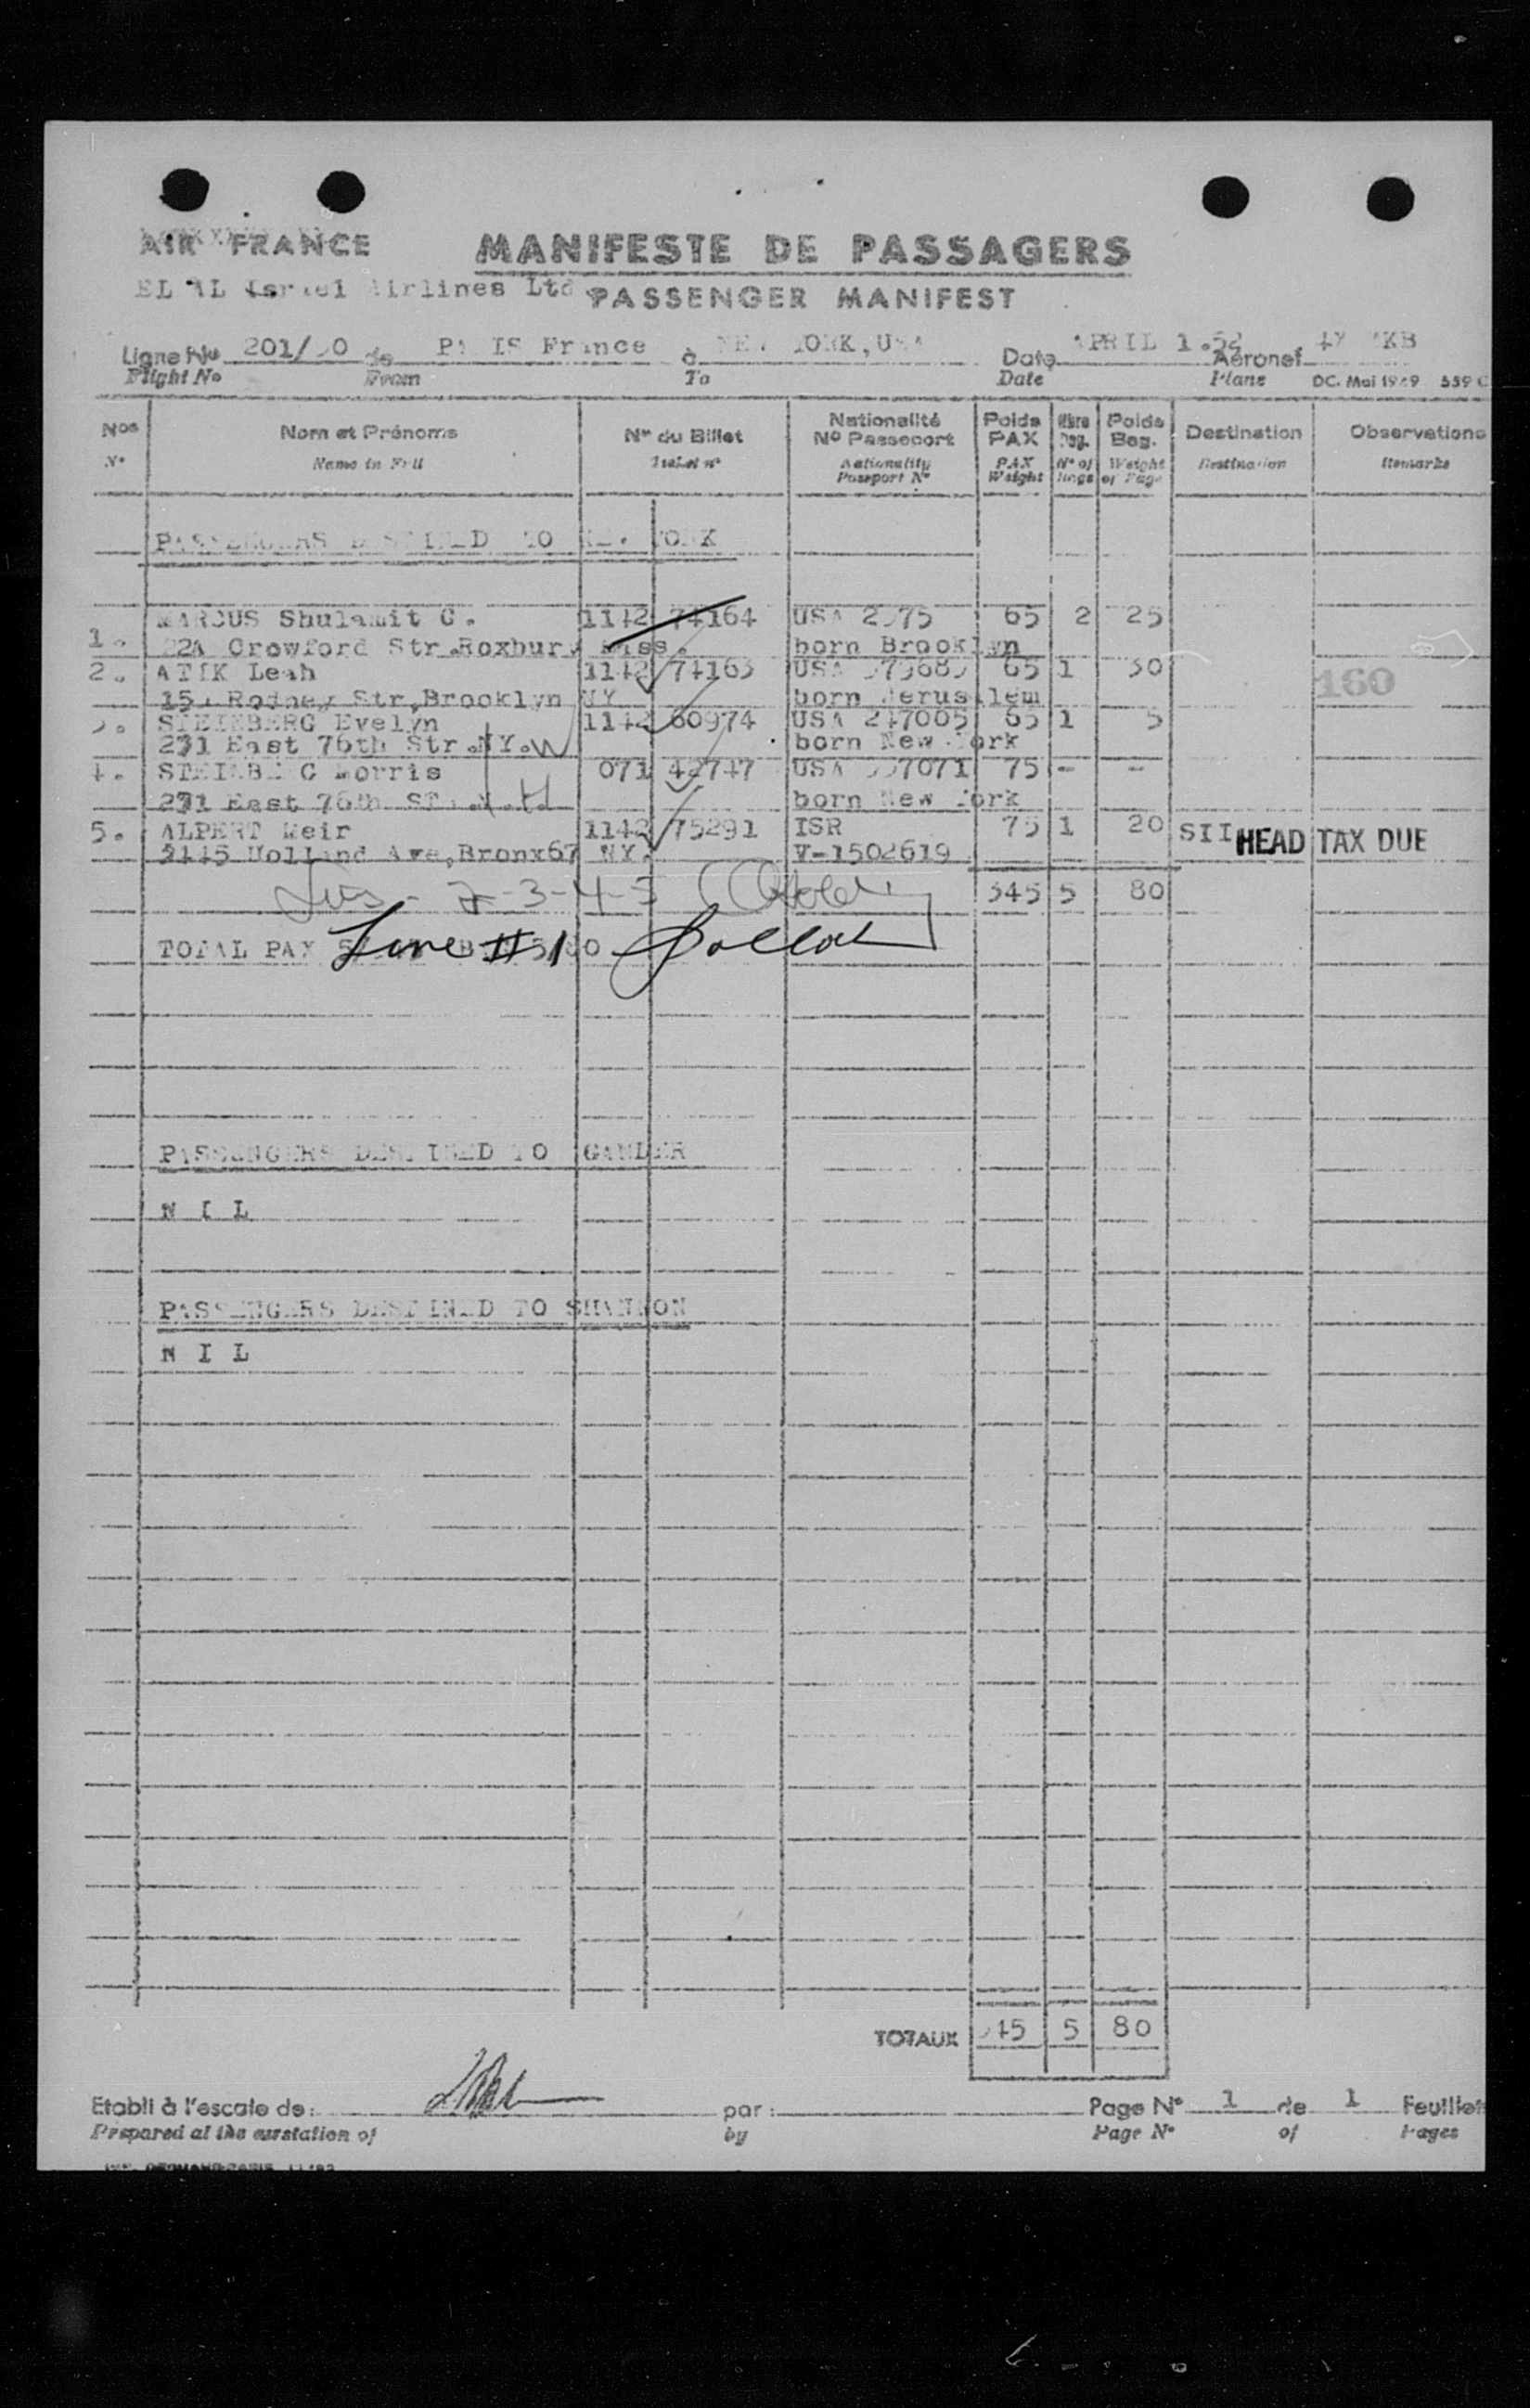 AIR FRANCE
MANIFESTE DE PASSAGERS
EL AL Israel Airlines Ltd
PASSENGER MANIFEST
Ligne No 201/ de PARIS France à NEW YORK, USA Date APRIL 1.52 Aéronef 4X AKB
Flight No From To Date Plane DC. Mai 1949 559 C
Nos Nom et Prénoms No du Billet Nationalité No Passeport Poids PAX Nbre Bag. Poids Bag. Destination Observations
No Name in Full Ticket no Nationality Passport No PAX Weight No of bags Weight of Bags Destination Remarks
PASSENGERS DESTINED TO NEW YORK
1. MARCUS Shulamit G. 1142 74164 USA 65 2 25
22A Crowford Str.Roxbury Mass. born Brooklyn
2. ATIK Leah 1142 74163 USA 65 1 30
Rodney Str,Brooklyn NY born Jerusalem
160
3. STEINBERG Evelyn 1142 60974 USA 247005 65 1 5
231 East 76th Str.NY. W born New York
4. STEINBERG Morris 071 42747 USA 75 - -
231 East 76th ST. born New York
5. ALPERT Meir 1142 75291 ISR 75 1 20 SII HEAD TAX DUE
2445 Holland Ave,Bronx67 NY. V-1502619
2-3-4-5
345 5 80
TOTAL PAX
Line #1
PASSENGERS DESTINED TO GANDER
N I L
PASSENGERS DESTINED TO SHANNON
N I L
TOTAUX 345 5 80
Etabli à l'escale de: par: Page No 1 de 1 Feuillets
Prepared at the outstation of by Page No of Pages